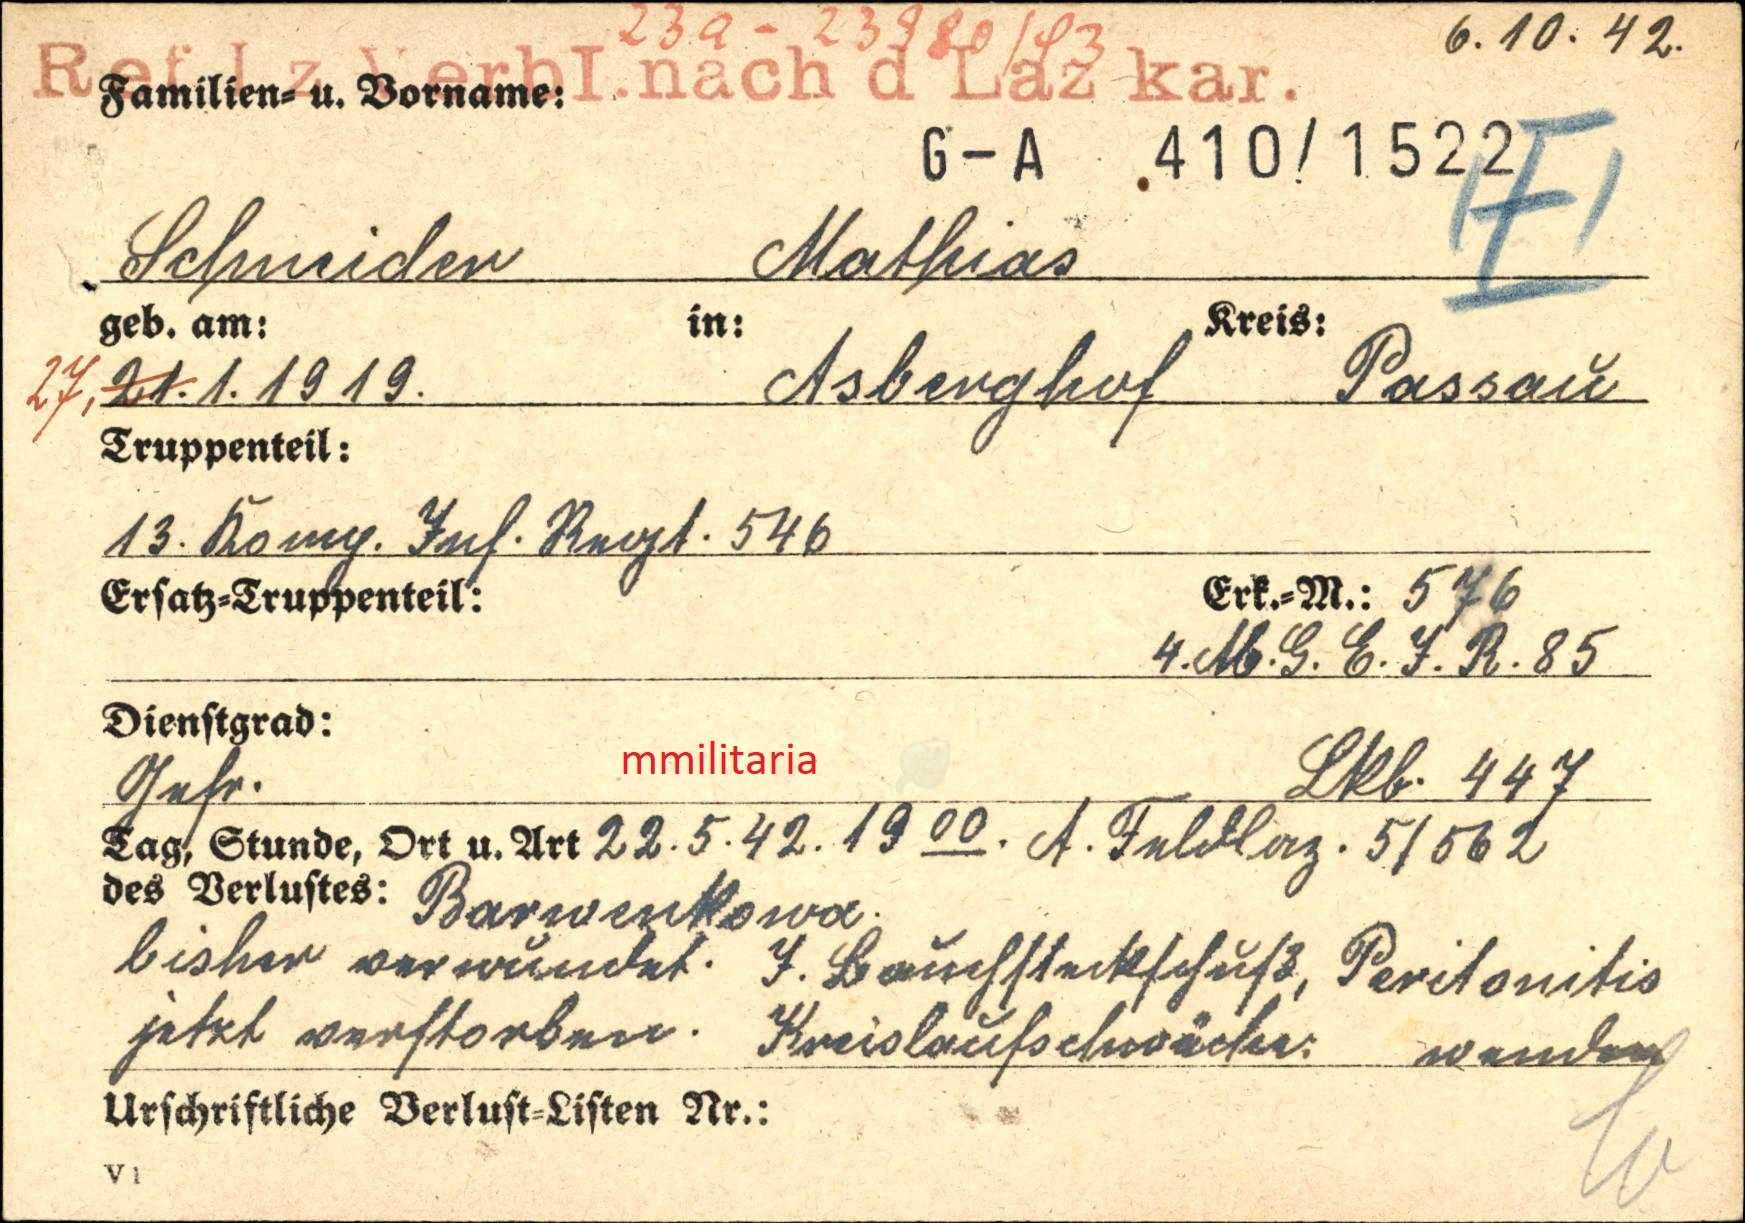 23a - 23980/43
6.10.42.
Ref. I z Verbl. nach d Laz kar.
Familien- u. Vorname:
G-A 410/1522
Schneider Mathias
geb. am: in: Kreis:
27, 21.1.1919. Asberghof Passau
Truppenteil:
13. Komp. Inf. Regt. 546
Ersatz-Truppenteil: Erk.-M.: 576
4. M.G.E.J.R. 85
Dienstgrad:
mmilitaria
Gefr. Lkb. 447
Tag, Stunde, Ort u. Art 22.5.42. 19 00. A. Feldlaz. 5/562
des Verlustes: Barwenkowa.
bisher verwundet. J. Bauchsteckschuß, Peritonitis
jetzt verstorben. Kreislaufschwäche. wenden
Urschriftliche Verlust-Listen Nr.:
V 1